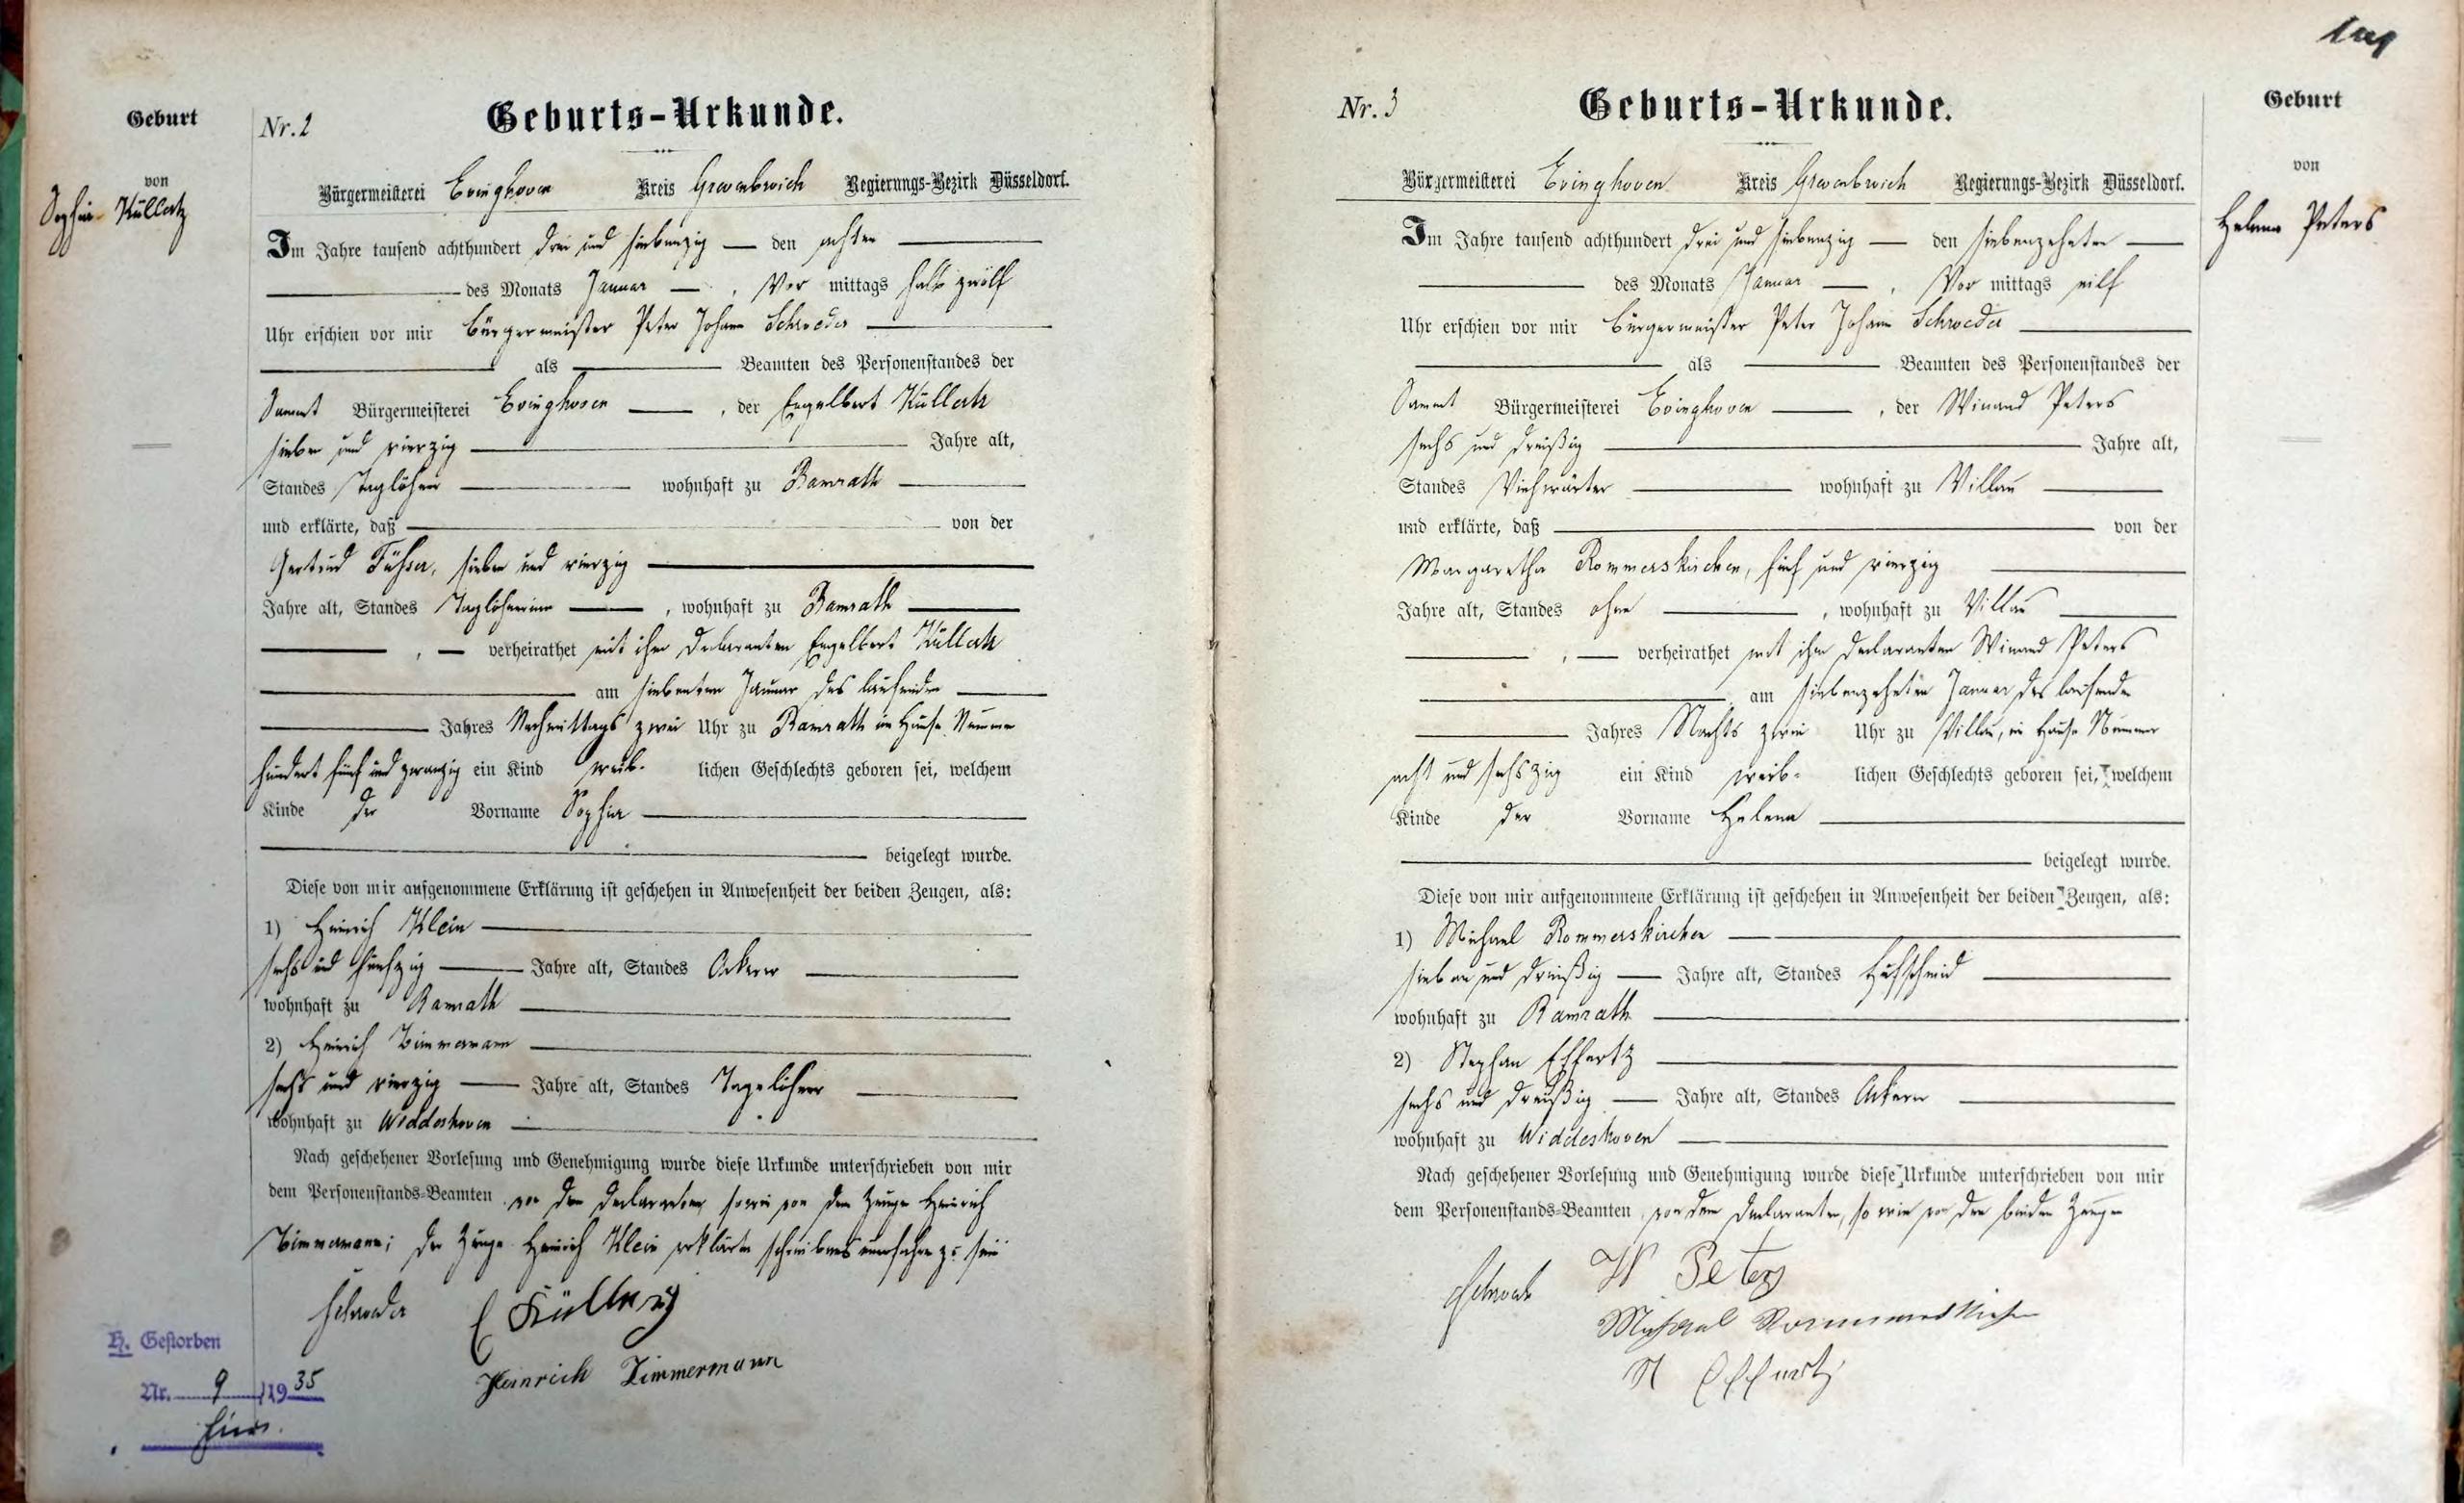 Geburt
von
Sophia Küllertz
Nr. 2
Geburts-Urkunde.
Bürgermeisterei Evinghoven Kreis Grevenbroich Regierungs-Bezirk Düsseldorf.
Im Jahre tausend achthundert drei und siebenzig — den achten
des Monats Januar — , Vor mittags halb zwölf
Uhr erschien vor mir Bürgermeister Peter Johann Schroeder
als Beamten des Personenstandes der
Sammt Bürgermeisterei Evinghoven — , der Engelbert Küllertz
sieben und vierzig Jahre alt,
Standes Taglöhner wohnhaft zu Ramrath
und erklärte, daß von der
Gertrud Führer, sieben und vierzig
Jahre alt, Standes Taglöhnerinn , wohnhaft zu Ramrath
, — verheirathet mit ihm Declaranten Engelbert Küllertz
am siebenten Januar des laufenden
Jahres Nachmittags zwei Uhr zu Ramrath im Hause Numero
hundert fünf und zwanzig ein Kind weib- lichen Geschlechts geboren sei, welchem
Kinde der Vorname Sophia
beigelegt wurde.
Diese von mir aufgenommene Erklärung ist geschehen in Anwesenheit der beiden Zeugen, als:
1) Heinrich Klein
sechs und fünfzig Jahre alt, Standes Ackerer
wohnhaft zu Ramrath
2) Heinrich Zimmermann
sechs und vierzig Jahre alt, Standes Tagelöhner
wohnhaft zu Widdeshoven
Nach geschehener Vorlesung und Genehmigung wurde diese Urkunde unterschrieben von mir
dem Personenstands-Beamten von dem Declaranten, sowie von dem Zeugen Heinrich
Zimmermann; der Zeuge Heinrich Klein erklärte schreibens unerfahren zu sein
Schroeder
Heinrich Zimmermann
H. Gestorben
Nr. 9 /19 35
hier.
Nr. 3
Geburts-Urkunde.
Geburt
von
Helena Peters
Bürgermeisterei Evinghoven Kreis Grevenbroich Regierungs-Bezirk Düsseldorf.
Im Jahre tausend achthundert drei und siebenzig — den siebenzehnten
des Monats Januar — , Vor mittags eilf
Uhr erschien vor mir Bürgermeister Peter Johann Schroeder
als Beamten des Personenstandes der
Sammt Bürgermeisterei Evinghoven , der Winand Peters
sechs und dreißig Jahre alt,
Standes Viehwärter wohnhaft zu Villau
und erklärte, daß von der
Margaretha Rommerskirchen, fünf und vierzig
Jahre alt, Standes ohne , wohnhaft zu Villau
, — verheirathet mit ihm Declaranten Winand Peters
am siebenzehnten Januar des laufenden
Jahres Nachts zwei Uhr zu Villau, im Hause Nummer
acht und sechszig ein Kind weib- lichen Geschlechts geboren sei, welchem
Kinde der Vorname Helena
beigelegt wurde.
Diese von mir aufgenommene Erklärung ist geschehen in Anwesenheit der beiden Zeugen, als:
1) Michael Rommerskirchen
sieben und dreißig Jahre alt, Standes Hufschmid
wohnhaft zu Ramrath
2) Stephan Effertz
sechs und dreißig Jahre alt, Standes Ackerer
wohnhaft zu Widdeshoven
Nach geschehener Vorlesung und Genehmigung wurde diese Urkunde unterschrieben von mir
dem Personenstands-Beamten, von dem Declaranten, so wie von den beiden Zeugen
Schroeder W Peters
Michael Rommerskirchen
St Effertz